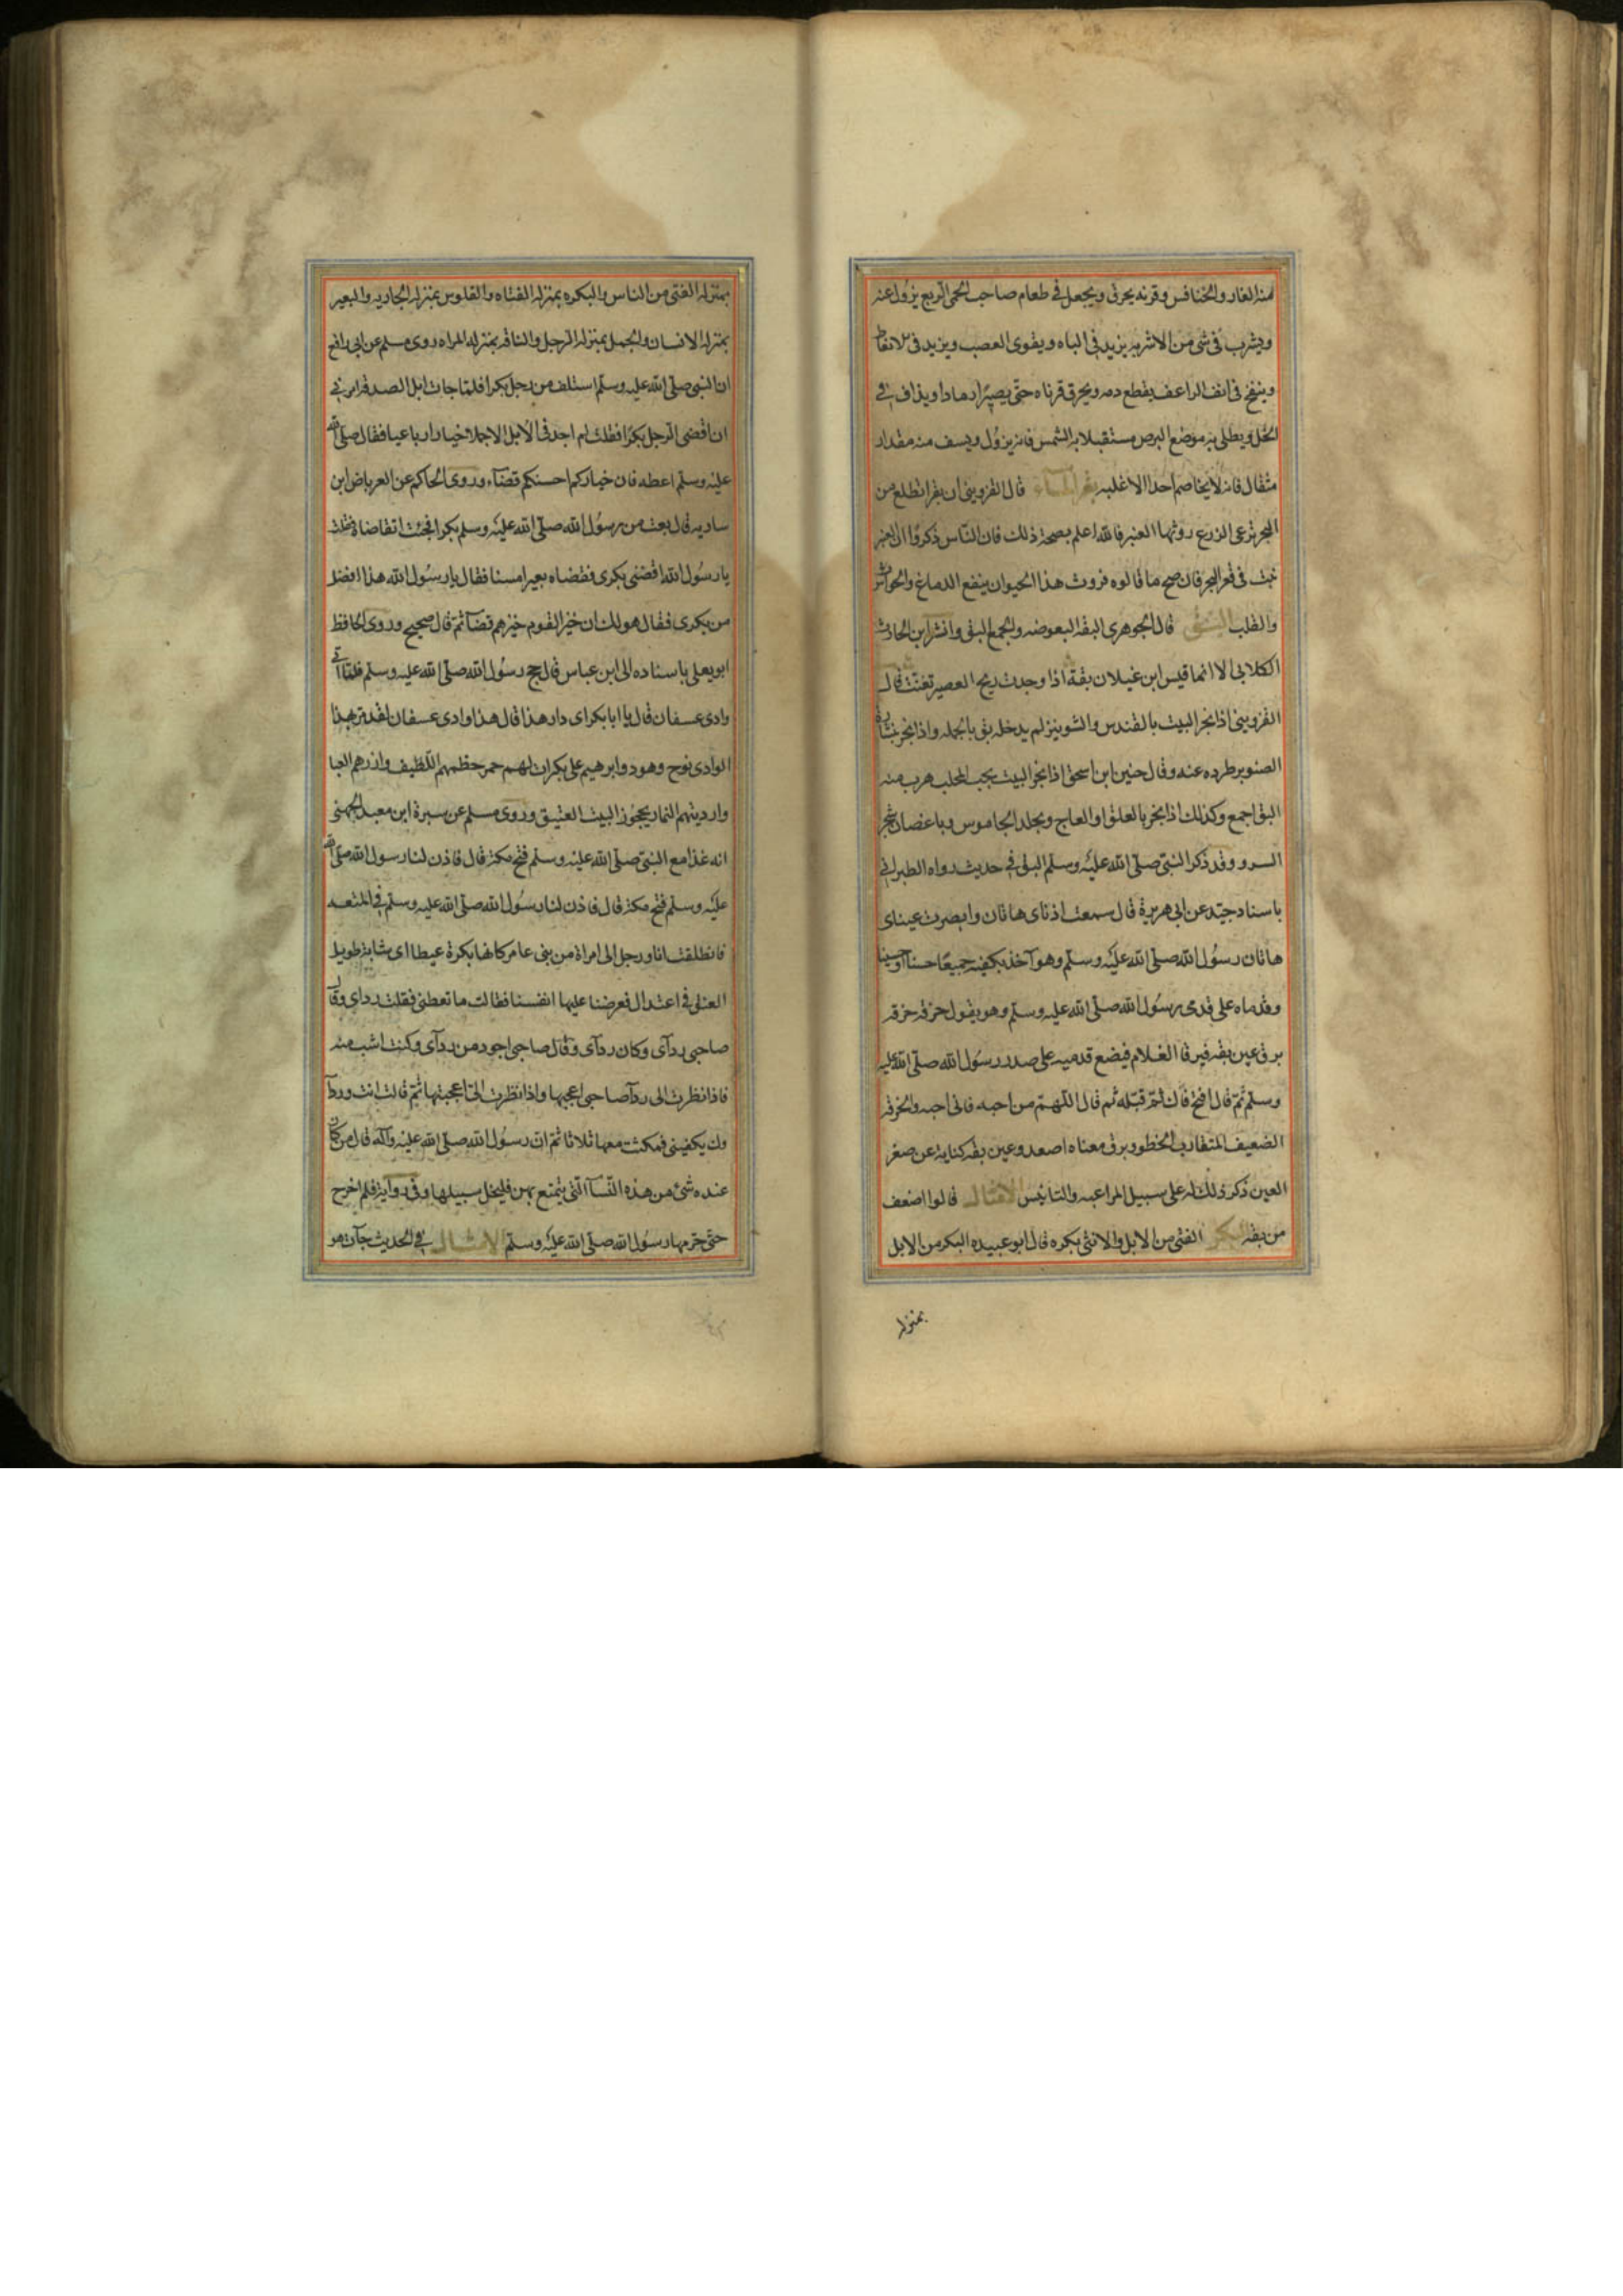 منه الفار والخنافس وقرنه يحرق ويجعل في طعام صاحب الحمى الربع يزول عنه
ويشرب في شى من الاشربه يزيد في الباه ويقوى العصب ويزيد في الانعاظ
وينفخ في انف الراعف يقطع دمه ويحرق قرناه حتى يصيرا رمادا ويذاف في
الخل ويطلى به موضع البرص مستقبلا به الشمس فانه يزول ويسف منه مقدار
مثقال فانه لا يخاصم احدا الا غلبه بقر الماء قال القزويني ان بقرا تطلع من
البحر ترعى الزرع روثها العنبر فالله اعلم بصحة ذلك فان الناس ذكروا ان العنبر
نبت في قعر البحر فان صح ما قالوه فروث هذا الحيوان ينفع الدماغ والحواس
والقلب البق قال الجوهرى البقه البعوضه والجمع البق وانشد ابن الحارث
الكلابى الا انما قيس ابن غيلان بقة اذا وجدت ريح العصير تغنت قال
القزوينى اذا بخر البيت بالقندس والشونيز لم يدخله بق بالجمله واذا بخر بنشارة
الصنوبر طرده عنه وقال حنين ابن اسحق اذا بخر البيت بحب المحلب هرب منه
البق اجمع وكذلك اذا بخر بالعلق او العاج وبجلد الجاموس وباغصان شجر
السرو وقد ذكر النبي صلى الله عليه وسلم البق في حديث رواه الطبرانى
باسناد جيد عن ابى هريرة قال سمعت اذناى هاتان وابصرت عيناى
هاتان رسول الله صلى الله عليه وسلم وهو آخذ بكفيه جميعا حسنا او حسينا
وقدماه على قدمى رسول الله صلى الله عليه وسلم وهو يقول حزقه حزقه
برق عين بقه فيرقا الغلام فيضع قدميه على صدر رسول الله صلى الله عليه
وسلم ثم قال افتح فاك ثم قبله ثم قال اللهم من احبه فانى احبه والحزقه
الضعيف المتقارب الخطو وبرق معناه اصعد وعين بقه كناية عن صغر
العين ذكر ذلك له على سبيل المراعبه والتانيس الامثال قالوا اضعف
من بقه البكر الفتى من الابل والانثى بكره قال ابو عبيده البكر من الابل
بمنزله
بمنزله الفتى من الناس والبكره بمنزله الفتاه والقلوص بمنزله الجاريه والبعير
بمنزله الانسان والجمل بمنزله الرجل والناقه بمنزله المراه روى مسلم عن ابى رافع
ان النبى صلى الله عليه وسلم استلف من رجل بكرا فلما جات ابل الصدقه امرنى
ان اقضى الرجل بكرا فقلت لم اجد في الابل الا جملا خيارا رباعيا فقال صلى الله
عليه وسلم اعطه فان خياركم احسنكم قضاء وروى الحاكم عن العرباض ابن
ساريه قال بعت من رسول الله صلى الله عليه وسلم بكرا فجئت اتقاضاه فقلت
يا رسول الله اقضنى بكرى فقضاه بعيرا مسنا فقال يا رسول الله هذا افضل
من بكرى فقال هو لك ان خير القوم خيرهم قضآ ثم قال صحيح وروى الحافظ
ابو يعلى باسناده الى ابن عباس قال حج رسول الله صلى الله عليه وسلم فلما اتى
وادى عسفان قال يا ابا بكر اى دار هذا قال هذا وادى عسفان لقد مر بهذا
الوادى نوح وهود وابرهيم على بكرات لهم حمر خطمهم الليف وازرهم العبا
وارديتهم النمار يحجون البيت العتيق وروى مسلم عن سبرة ابن معبد الجهنى
انه غذا مع النبى صلى الله عليه وسلم فتح مكة قال فاذن لنا رسول الله صلى الله
عليه وسلم فتح مكة قال فاذن لنا رسول الله صلى الله عليه وسلم في المتعه
فانطلقت انا ورجل الى امراة من بنى عامر كانها بكرة عيطا اى شابة طويله
العنق في اعتدال فعرضنا عليها انفسنا فقالت ما تعطنى فقلت رداى وقال
صاحبى ردآى وكان ردآى وقال صاحبى اجود من ردآى وكنت اشب منه
فاذا نظرت الى ردآ صاحبى اعجبها واذا نظرت الى اعجبتها ثم قالت انت وردآ
وك يكفينى فمكثت معها ثلاثا ثم ان رسول الله صلى الله عليه وآله قال من كان
عنده شئ من هذه النسآ التى يتمتع بهن فليخل سبيلها وفى رواية فلم اخرج
حتى حرمها رسول الله صلى الله عليه وسلم الامثال في الحديث جآت هو